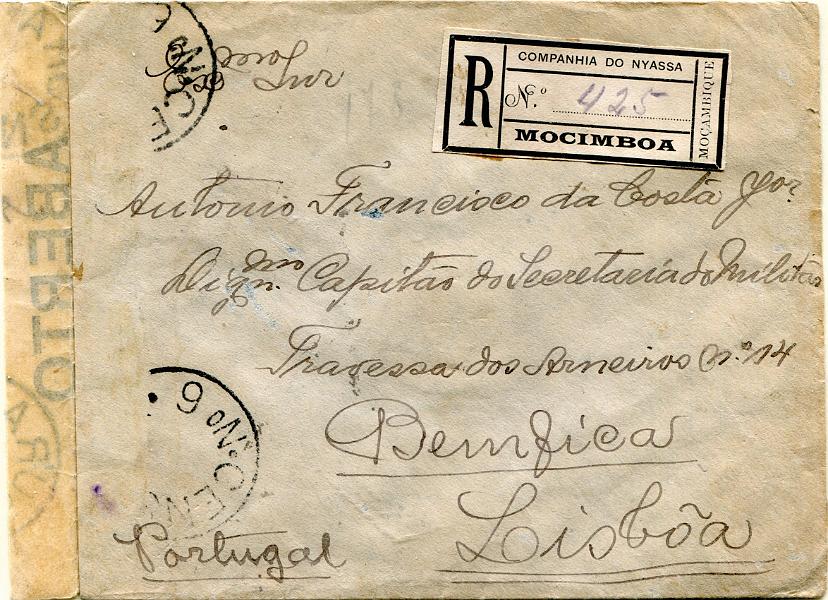 COMPANHIA DO NYASSA
R
N.º 425
MOCIMBOA
MOÇAMBIQUE
Antonio Francisco da Costa Jor
Dignmo Capitão do Secretariado Militar
Travessa dos Arneiros N.º 14
Bemfica
Lisbôa
Portugal
ABERTO
Nº 6
CEN